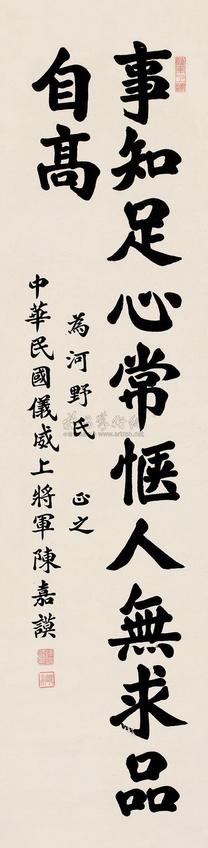 事知足心常惬人無求品
自高
為河野氏 正之
中華民國儀威上將軍陳嘉謨
www.artron.net